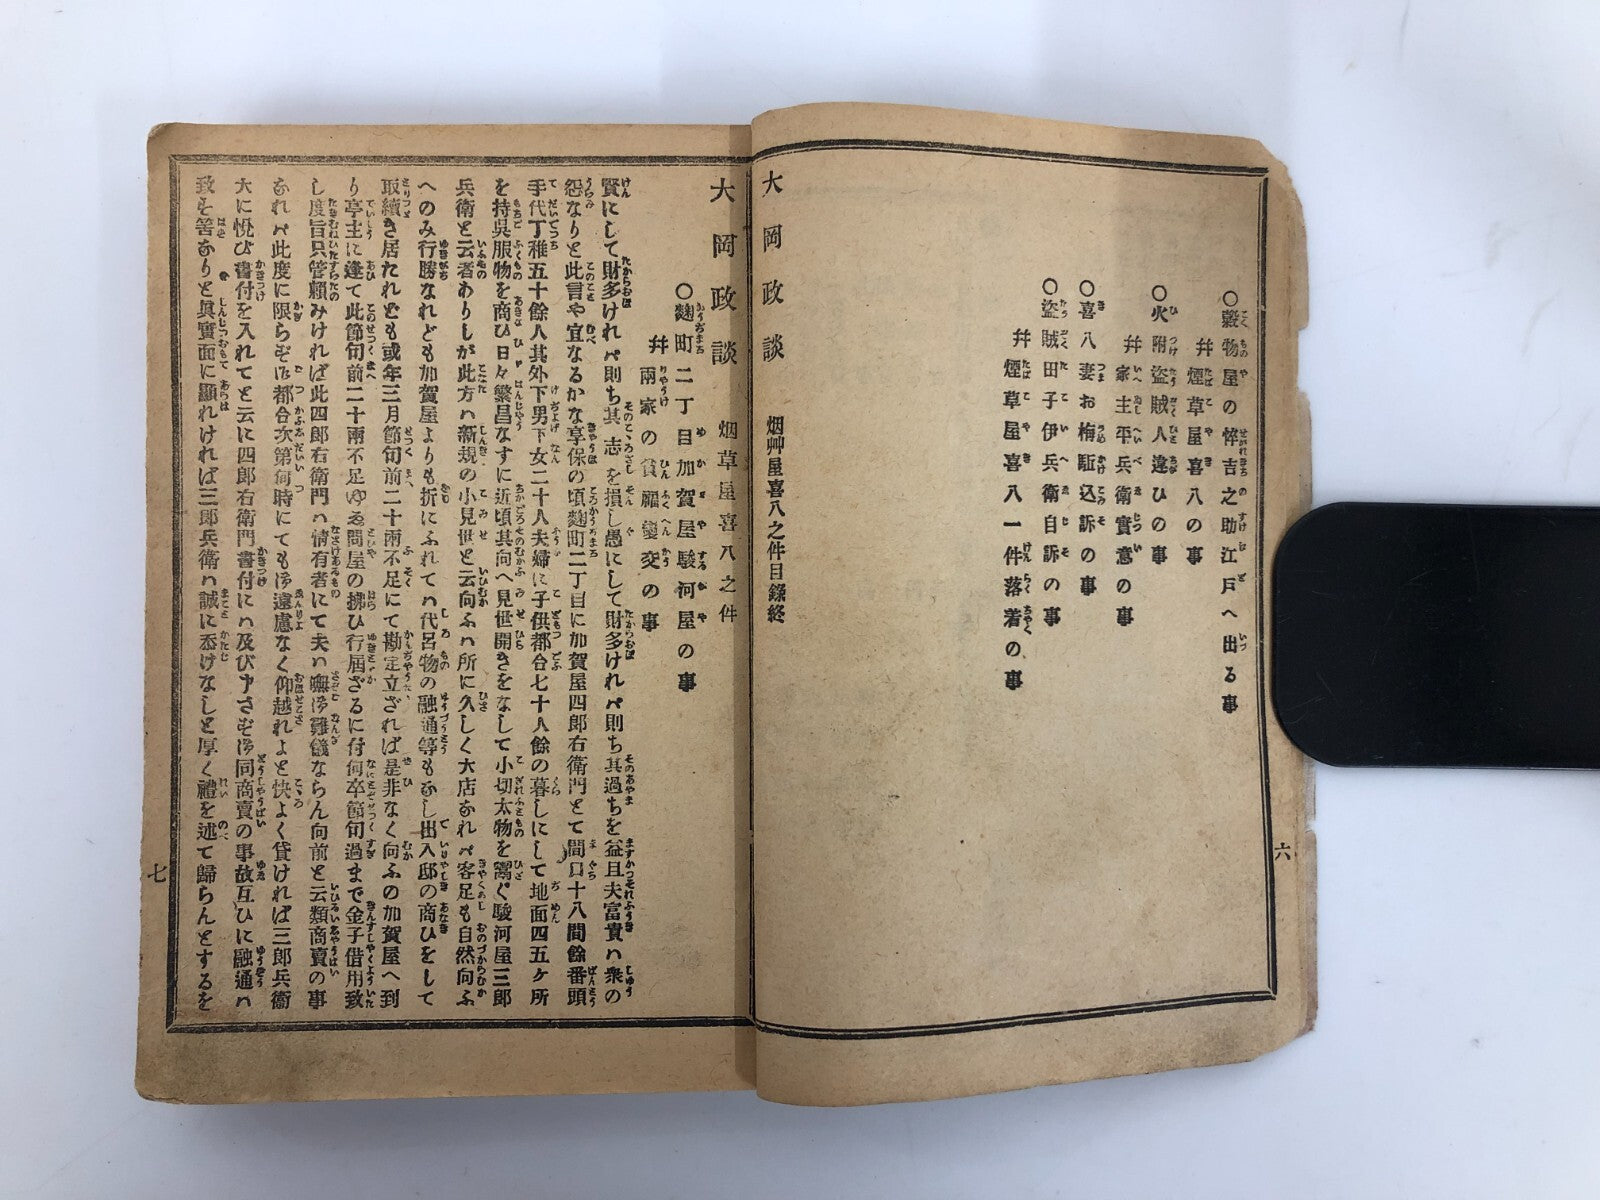 ○穀物屋の悴吉之助江戸へ出る事
幷煙草屋喜八の事
○火附盜賊人違ひの事
幷家主平兵衞實意の事
○喜八妻お梅駈込訴の事
○盜賊田子伊兵衞自訴の事
幷煙草屋喜八一件落着の事
大岡政談 烟艸屋喜八之件目錄終
六
大岡政談 烟草屋喜八之件
○麴町二丁目加賀屋駿河屋の事
幷兩家の貧福變交の事
賢にして財多けれバ則ち其志を損し愚にして財多けれバ則ち其過ちを益且夫富貴ハ衆の
怨なりと此言や宜なるかな享保の頃麴町二丁目に加賀屋四郎右衞門とて間口十八間餘番頭
手代丁稚五十餘人其外下男下女二十人夫婦に子供都合七十人餘の暮しにして地面四五ヶ所
を持呉服物を商ひ日々繁昌なすに近頃其向へ見世開きをなして小切太物を鬻ぐ駿河屋三郎
兵衞と云者ありしが此方ハ新規の小見世と云向ふハ所に久しく大店なれバ客足も自然向ふ
へのみ行勝なれども加賀屋よりも折にふれてハ代呂物の融通等もなし出入邸の商ひをして
取續き居たれども或年三月節句前二十兩不足にて勘定立ざれば是非なく向ふの加賀屋へ到
り亭主に逢て此節句前二十兩不足ゆゑ問屋の拂ひ行屆ざるに付何卒節句過まで金子借用致
し度旨只管賴みければ此四郎右衞門ハ情有者にて夫ハ嘸御難儀ならん向前と云類商賣の事
なれバ此度に限らず御都合次第何時にても御遠慮なく仰越れよと快よく貸ければ三郎兵衞
大に悅び書付を入れてと云に四郎右衞門書付にハ及び申さず御同商賣の事故互ひに融通ハ
致す筈なりと眞實面に顯れければ三郎兵衞ハ誠に忝けなしと厚く禮を述て歸らんとするを
七